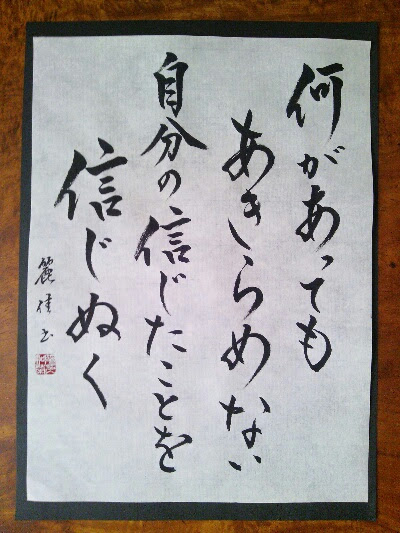 何があっても
あきらめない
自分の信じたことを
信じぬく